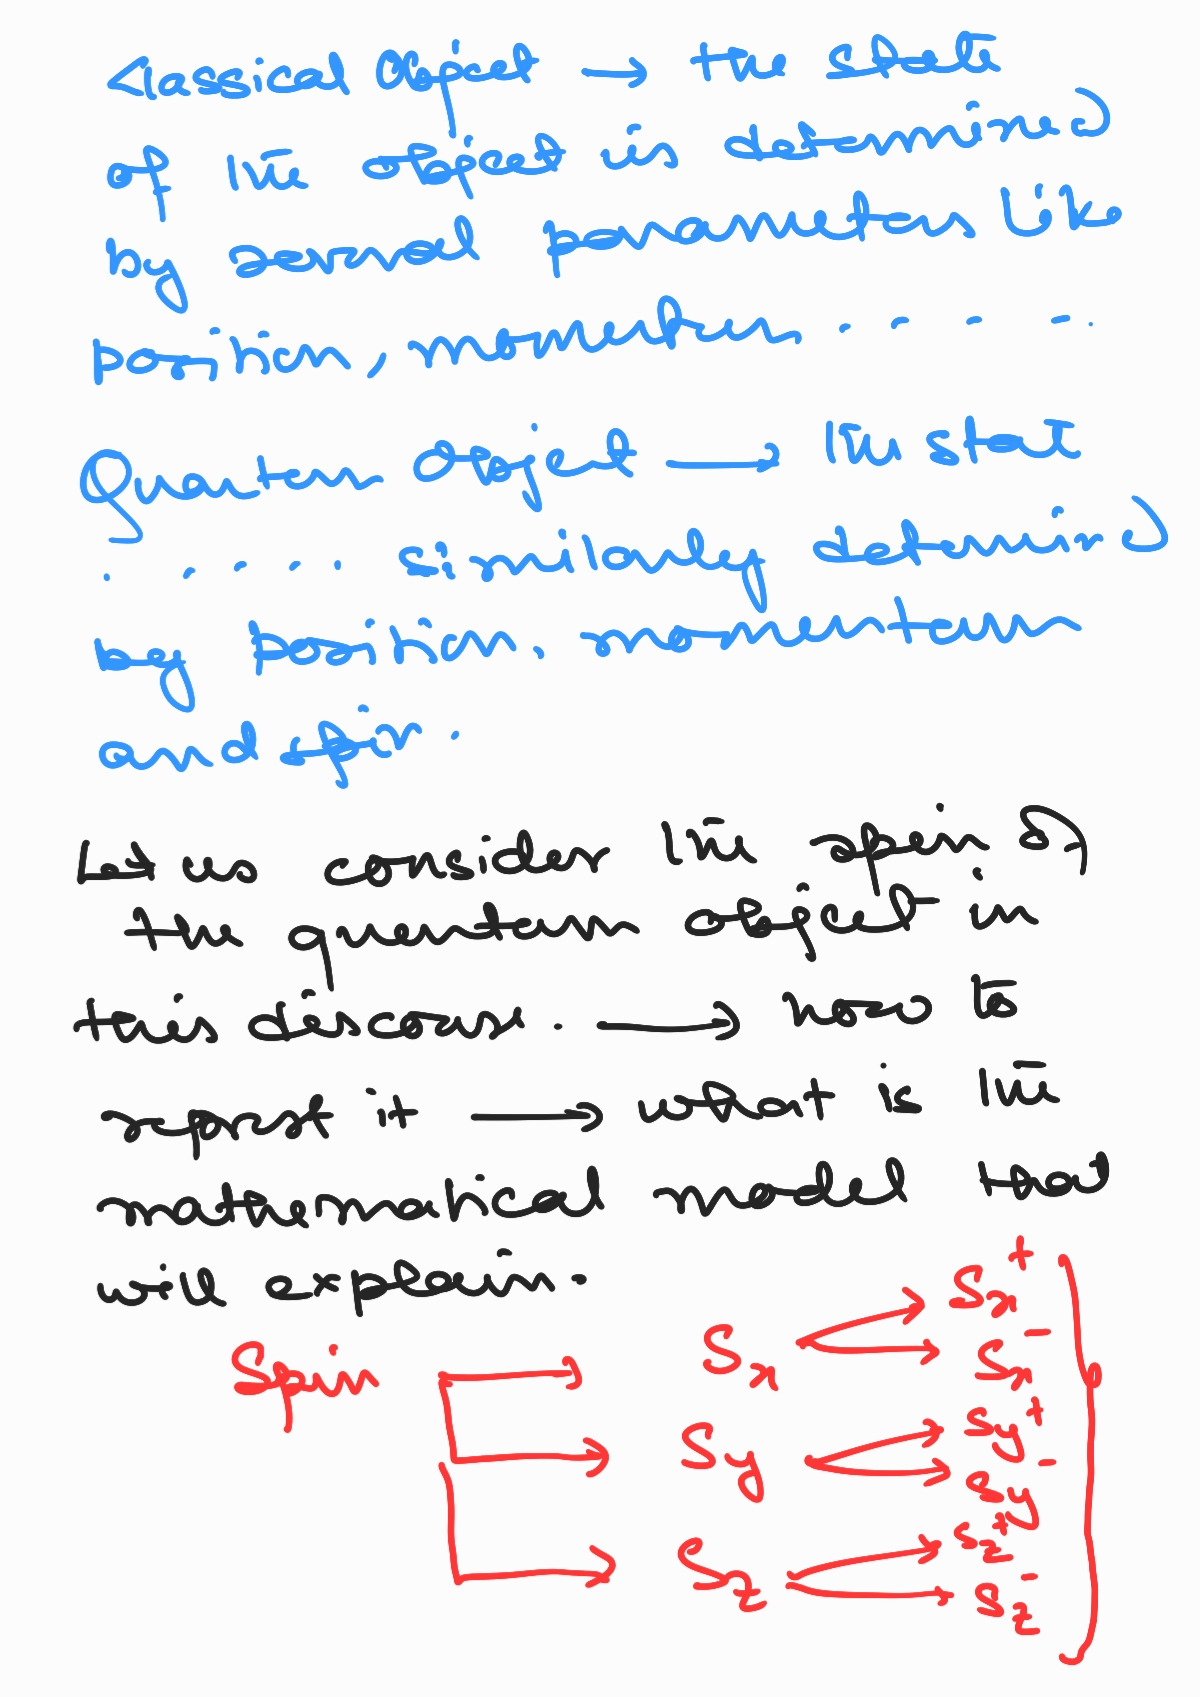 Classical Object → the state
of the object is determined
by several parameters like
position, momentum . . . . .
Quantum Object → the stat
. . . . . similarly determined
by position, momentum
and spin.
Let us consider the spin of
the quantum object in
this discourse. → how to
represt it → what is the
mathematical model that
will explain.
Spin → Sx → Sx+
Sx-
→ Sy → Sy+
Sy-
→ Sz → Sz+
Sz-